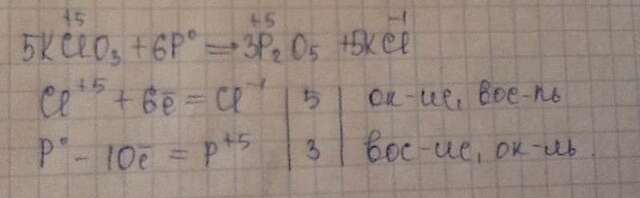 5KCl⁺⁵O₃ + 6P⁰ → 3P₂⁺⁵O₅ + 5KCl⁻¹
Cl⁺⁵ + 6ē = Cl⁻¹ | 5 | ок-ие, вос-ль
P⁰ - 10ē = P⁺⁵ | 3 | вос-ие, ок-ль.